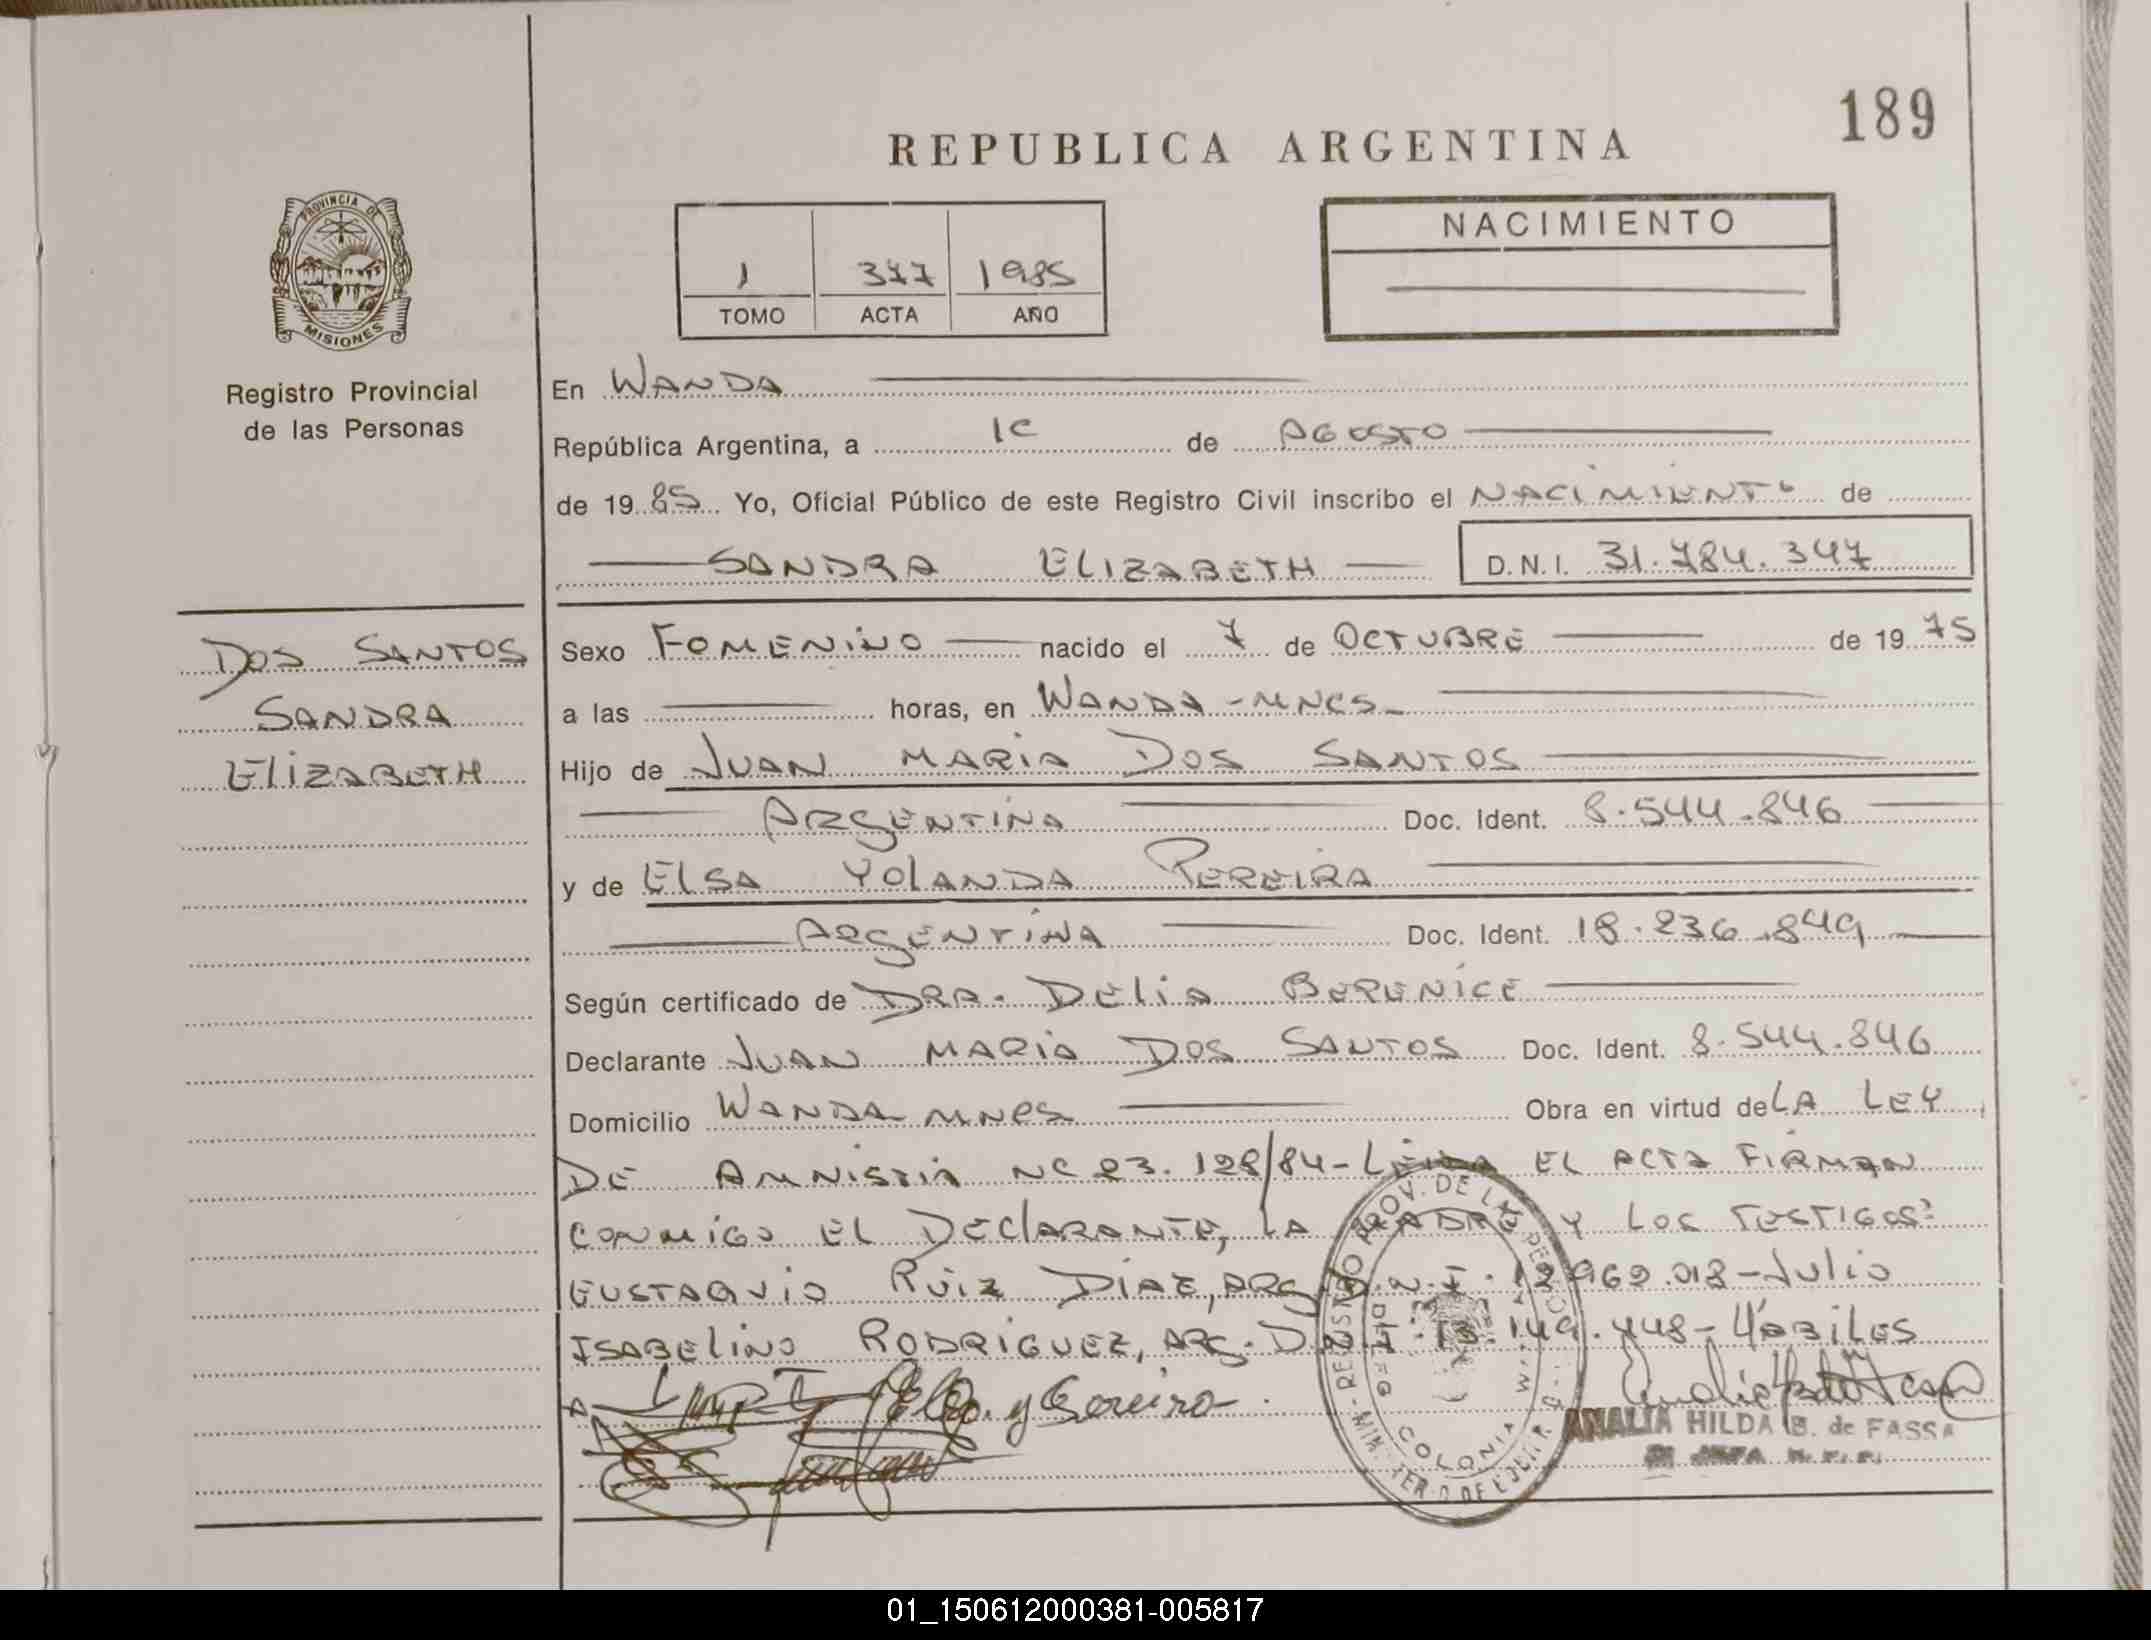 189
REPUBLICA ARGENTINA
PROVINCIA DE
MISIONES
Registro Provincial
de las Personas
1 377 1985
TOMO ACTA AÑO
NACIMIENTO
En WANDA
República Argentina, a de AGOSTO
de 19 85 Yo, Oficial Público de este Registro Civil inscribo el NACIMIENTO de
SANDRA ELIZABETH D.N.I. 31.784.347
DOS SANTOS
SANDRA
ELIZABETH
Sexo FOMENINO nacido el 7 de OCTUBRE de 19 75
a las horas, en WANDA - MNES
Hijo de JUAN MARIA DOS SANTOS
ARGENTINA Doc. Ident. 8.544.846
y de ELSA YOLANDA PEREIRA
ARGENTINA Doc. Ident. 18.236.849
Según certificado de DRA. DELIA BERENICE
Declarante JUAN MARIA DOS SANTOS Doc. Ident. 8.544.846
Domicilio WANDA MNES Obra en virtud de LA LEY
DE AMNISTIA Nº 23.128/84 - LEIDA EL ACTA FIRMAN
CONMIGO EL DECLARANTE, LA MADRE Y LOS TESTIGOS:
EUSTAQUIO RUIZ DIAZ, ARG. D.N.I. 12.962.018 - JULIO
ISABELINO RODRIGUEZ, ARG. D.N.I. 13.149.448 - HÁBILES
REGISTRO PROV. DE LAS PERSONAS
COLONIA WANDA
ANALIA HILDA B. de FASSA
01_150612000381-005817